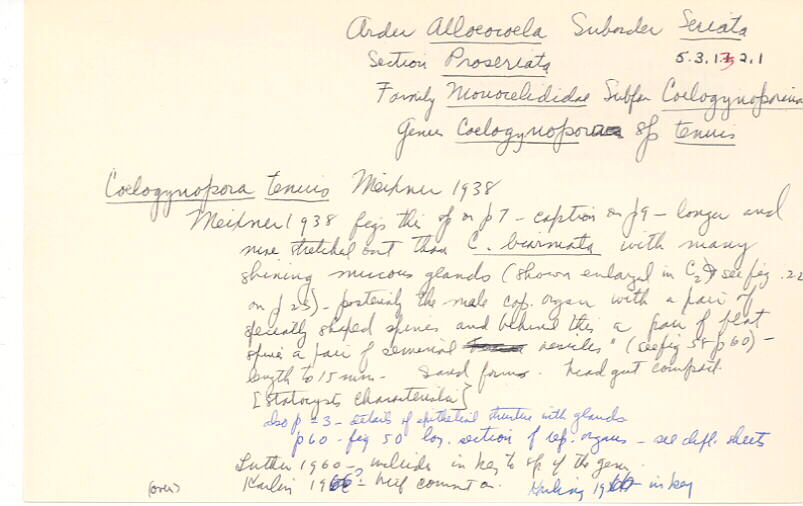 Order Alloeocoela Suborder Seriata
Section Proseriata 5.3.13 2.1
Family Monocelididae Subfam Coelogynoporina
Genus Coelogynopora sp tenuis
Coelogynopora tenuis Meixner 1938
Meixner 1938 figs this sp on p7 - caption on p9 - longer and
more stretched out than C. biarmata with many
shining mucous glands (shown enlarged in C2 see fig. 22
on p 23) - posteriorly the male cop. organ with a pair of
specially shaped spines and behind this a pair of flat
spines a pair of seminal vesicles" (see fig 58 p60) -
length to 15 mm - Sand forms. head gut compart.
[Statocysts characteristic]
also p - 3 - details of epithelial structure with glands
p60 - fig 50 long. section of rep. organs - see dupl. sheets
Luther 1960 - includes in key to sp of the genus
(over) Karling 1966? - brief comment on. Karling 1966 in key